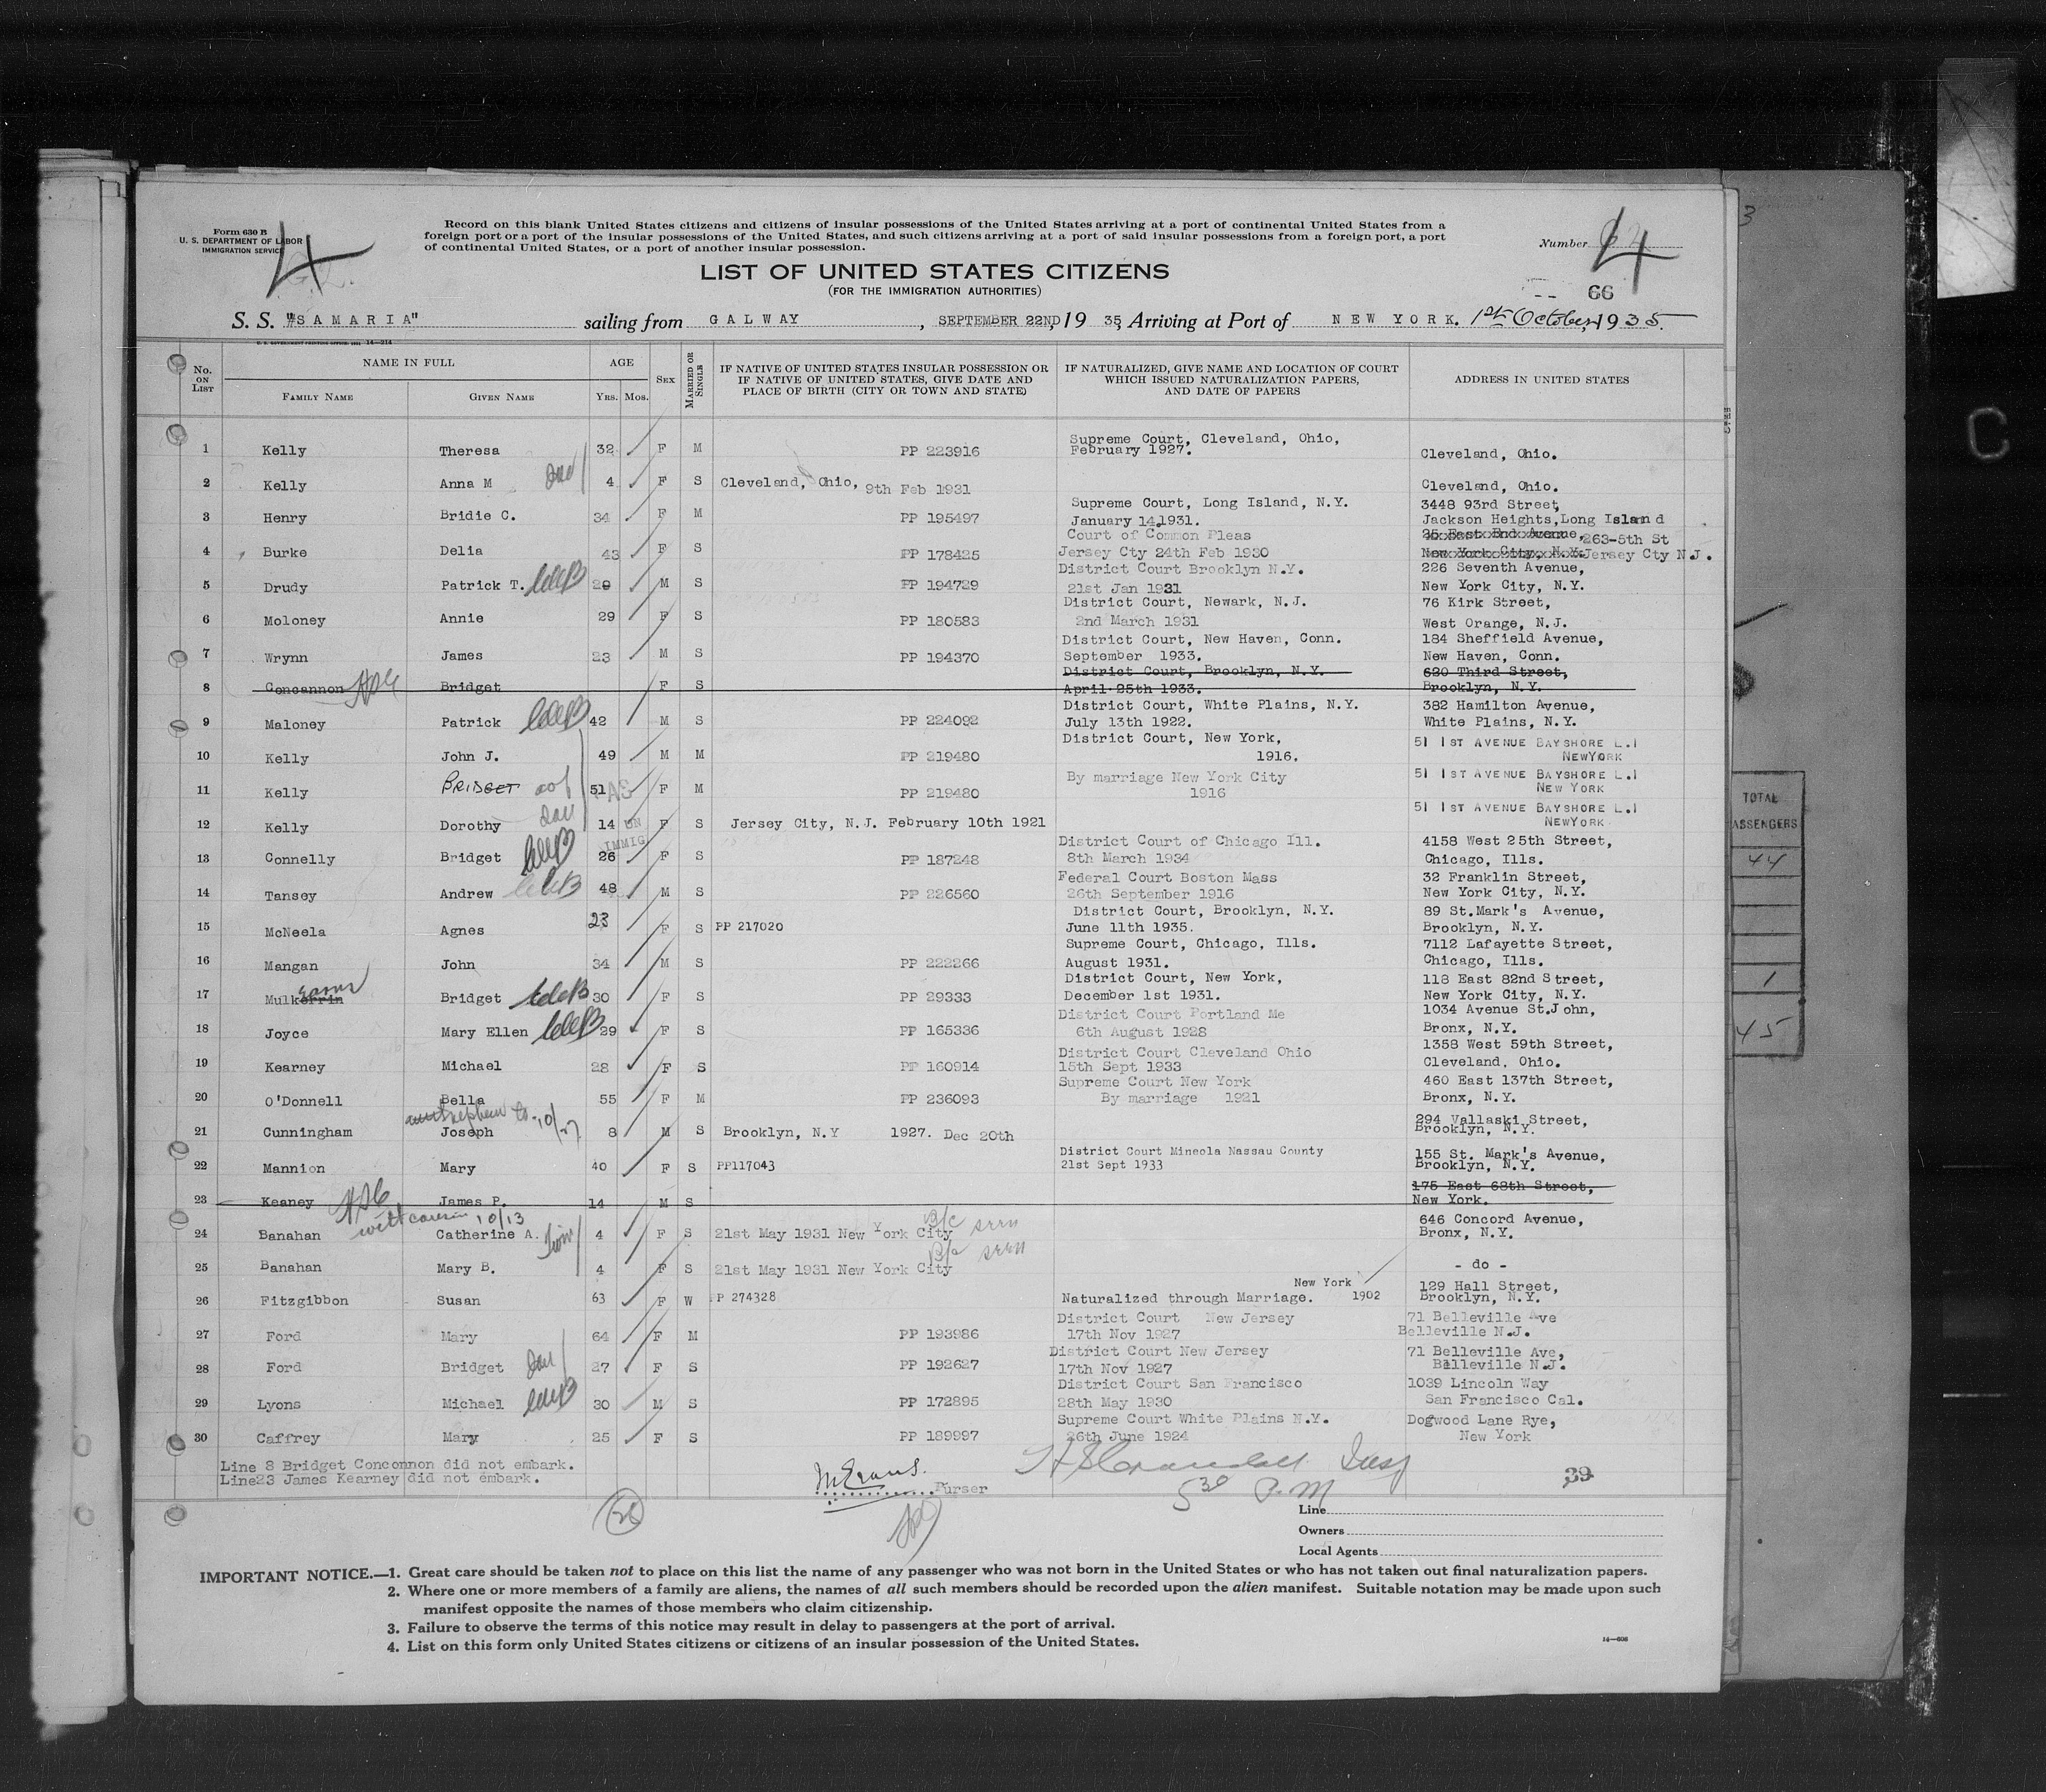 Form 630 B
U. S. DEPARTMENT OF LABOR
IMMIGRATION SERVICE
4
Record on this blank United States citizens and citizens of insular possessions of the United States arriving at a port of continental United States from a
foreign port or a port of the insular possessions of the United States, and such citizens arriving at a port of said insular possessions from a foreign port, a port
of continental United States, or a port of another insular possession.
Number 4
66
LIST OF UNITED STATES CITIZENS
(FOR THE IMMIGRATION AUTHORITIES)
S. S. "SAMARIA" sailing from GALWAY, SEPTEMBER 22ND 1935, Arriving at Port of NEW YORK. 1st October, 1935.
U. S. GOVERNMENT PRINTING OFFICE: 1931 14—214
No. ON LIST NAME IN FULL FAMILY NAME GIVEN NAME AGE YRS. MOS. SEX MARRIED OR SINGLE IF NATIVE OF UNITED STATES INSULAR POSSESSION OR IF NATIVE OF UNITED STATES, GIVE DATE AND PLACE OF BIRTH (CITY OR TOWN AND STATE) IF NATURALIZED, GIVE NAME AND LOCATION OF COURT WHICH ISSUED NATURALIZATION PAPERS, AND DATE OF PAPERS ADDRESS IN UNITED STATES
1 Kelly Theresa 32 F M PP 223916 Supreme Court, Cleveland, Ohio, February 1927. Cleveland, Ohio.
2 Kelly Anna M dau 4 F S Cleveland, Ohio, 9th Feb 1931 Cleveland, Ohio.
3 Henry Bridie C. 34 F M PP 195497 Supreme Court, Long Island, N.Y. January 14,1931. 3448 93rd Street, Jackson Heights, Long Island
4 Burke Delia 43 F S PP 178425 Court of Common Pleas Jersey Cty 24th Feb 1930 25 East End Avenue, New York City, N.Y. 263-5th St Jersey Cty N.J.
5 Drudy Patrick T. 29 M S PP 194729 District Court Brooklyn N.Y. 21st Jan 1931 226 Seventh Avenue, New York City, N.Y.
6 Moloney Annie 29 F S PP 180583 District Court, Newark, N.J. 2nd March 1931 76 Kirk Street, West Orange, N.J.
7 Wrynn James 23 M S PP 194370 District Court, New Haven, Conn. September 1933. 184 Sheffield Avenue, New Haven, Conn.
8 Concannon Bridget F S District Court, Brooklyn, N.Y. April 25th 1933. 620 Third Street, Brooklyn, N.Y.
9 Maloney Patrick 42 M S PP 224092 District Court, White Plains, N.Y. July 13th 1922. 382 Hamilton Avenue, White Plains, N.Y.
10 Kelly John J. 49 M M PP 219480 District Court, New York, 1916. 51 1ST AVENUE BAYSHORE L.I NEWYORK
11 Kelly BRIDGET 51 F M PP 219480 By marriage New York City 1916 51 1ST AVENUE BAYSHORE L.I NEW YORK
12 Kelly Dorothy dau 14 F S Jersey City, N.J. February 10th 1921 51 1ST AVENUE BAYSHORE L.I NEWYORK
13 Connelly Bridget 26 F S PP 187248 District Court of Chicago Ill. 8th March 1934 4158 West 25th Street, Chicago, Ills.
14 Tansey Andrew 48 M S PP 226560 Federal Court Boston Mass 26th September 1916 32 Franklin Street, New York City, N.Y.
15 McNeela Agnes 23 F S PP 217020 District Court, Brooklyn, N.Y. June 11th 1935. 89 St.Mark's Avenue, Brooklyn, N.Y.
16 Mangan John 34 M S PP 222266 Supreme Court, Chicago, Ills. August 1931. 7112 Lafayette Street, Chicago, Ills.
17 Mulkerrin Bridget 30 F S PP 29333 District Court, New York, December 1st 1931. 118 East 82nd Street, New York City, N.Y.
18 Joyce Mary Ellen 29 F S PP 165336 District Court Portland Me 6th August 1928 1034 Avenue St.John, Bronx, N.Y.
19 Kearney Michael 28 F S PP 160914 District Court Cleveland Ohio 15th Sept 1933 1358 West 59th Street, Cleveland. Ohio.
20 O'Donnell Bella 55 F M PP 236093 Supreme Court New York By marriage 1921 460 East 137th Street, Bronx, N.Y.
21 Cunningham Joseph nephew to 8 M S Brooklyn, N.Y 1927. Dec 20th 294 Vallaski Street, Brooklyn, N.Y.
22 Mannion Mary 40 F S PP117043 District Court Mineola Nassau County 21st Sept 1933 155 St. Mark's Avenue, Brooklyn, N.Y.
23 Keaney James P. 14 M S 175 East 68th Street, New York.
with cousin 10/13
24 Banahan Catherine A. Twin 4 F S 21st May 1931 New York City B/c seen 646 Concord Avenue, Bronx, N.Y.
25 Banahan Mary B. 4 F S 21st May 1931 New York City B/c seen - do -
26 Fitzgibbon Susan 63 F W PP 274328 Naturalized through Marriage. New York 1902 129 Hall Street, Brooklyn, N.Y.
27 Ford Mary 64 F M PP 193986 District Court New Jersey 17th Nov 1927 71 Belleville Ave Belleville N.J.
28 Ford Bridget dau 27 F S PP 192627 District Court New Jersey 17th Nov 1927 71 Belleville Ave, Belleville N.J.
29 Lyons Michael 30 M S PP 172895 District Court San Francisco 28th May 1930 1039 Lincoln Way San Francisco Cal.
30 Caffrey Mary 25 F S PP 189997 Supreme Court White Plains N.Y. 26th June 1924 Dogwood Lane Rye, New York
Line 8 Bridget Concannon did not embark.
Line23 James Kearney did not embark.
M Evans. Purser
5 30 P.M
39
28
Line
Owners
Local Agents
IMPORTANT NOTICE.—1. Great care should be taken not to place on this list the name of any passenger who was not born in the United States or who has not taken out final naturalization papers.
2. Where one or more members of a family are aliens, the names of all such members should be recorded upon the alien manifest. Suitable notation may be made upon such
manifest opposite the names of those members who claim citizenship.
3. Failure to observe the terms of this notice may result in delay to passengers at the port of arrival.
4. List on this form only United States citizens or citizens of an insular possession of the United States.
14—608
TOTAL
PASSENGERS
44
1
45
3
C